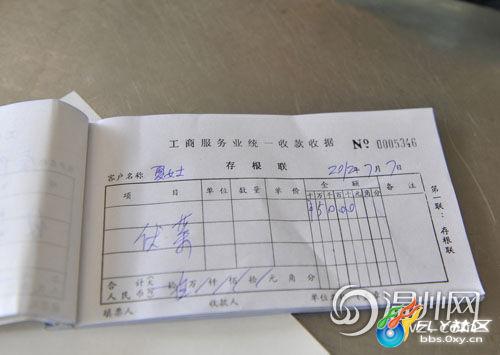 工商服务业统一收款收据 № 0005346
存根联
客户名称 贾女士 2012年7月7日
项目 单位 数量 单价 金额 备注
十万千百十元角分
¥50000
伏茶
合计(大 拾 万 仟 佰 拾 元 角 分
人民币写
填票人 收款人 单位
第一联：存根联
温州网
社区
bbs.0xy.cn